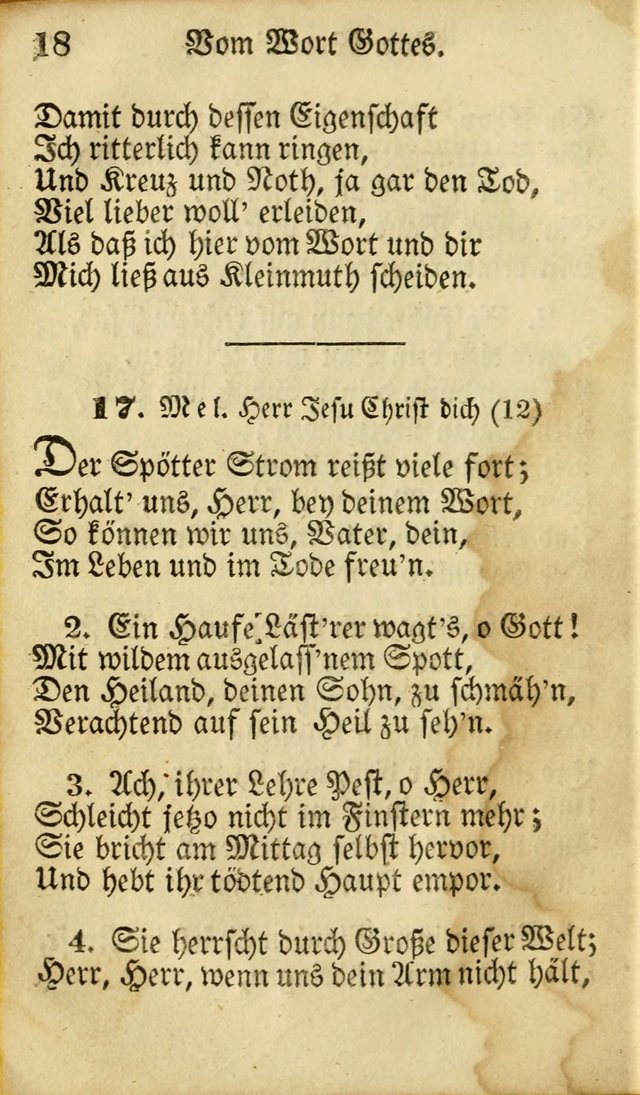 18 Vom Wort Gottes.
Damit durch dessen Eigenschaft
Ich ritterlich kann ringen,
Und Kreuz und Noth, ja gar den Tod,
Viel lieber woll' erleiden,
Als daß ich hier vom Wort und dir
Mich ließ aus Kleinmuth scheiden.
17. Mel. Herr Jesu Christ dich (12)
Der Spötter Strom reißt viele fort;
Erhalt' uns, Herr, bey deinem Wort,
So können wir uns, Vater, dein,
Im Leben und im Tode freu'n.
2. Ein Haufe Läst'rer wagt's, o Gott!
Mit wildem ausgelass'nem Spott,
Den Heiland, deinen Sohn, zu schmäh'n,
Verachtend auf sein Heil zu seh'n.
3. Ach, ihrer Lehre Pest, o Herr,
Schleicht jetzo nicht im Finstern mehr;
Sie bricht am Mittag selbst hervor,
Und hebt ihr tödtend Haupt empor.
4. Sie herrscht durch Große dieser Welt;
Herr, Herr, wenn uns dein Arm nicht hält,